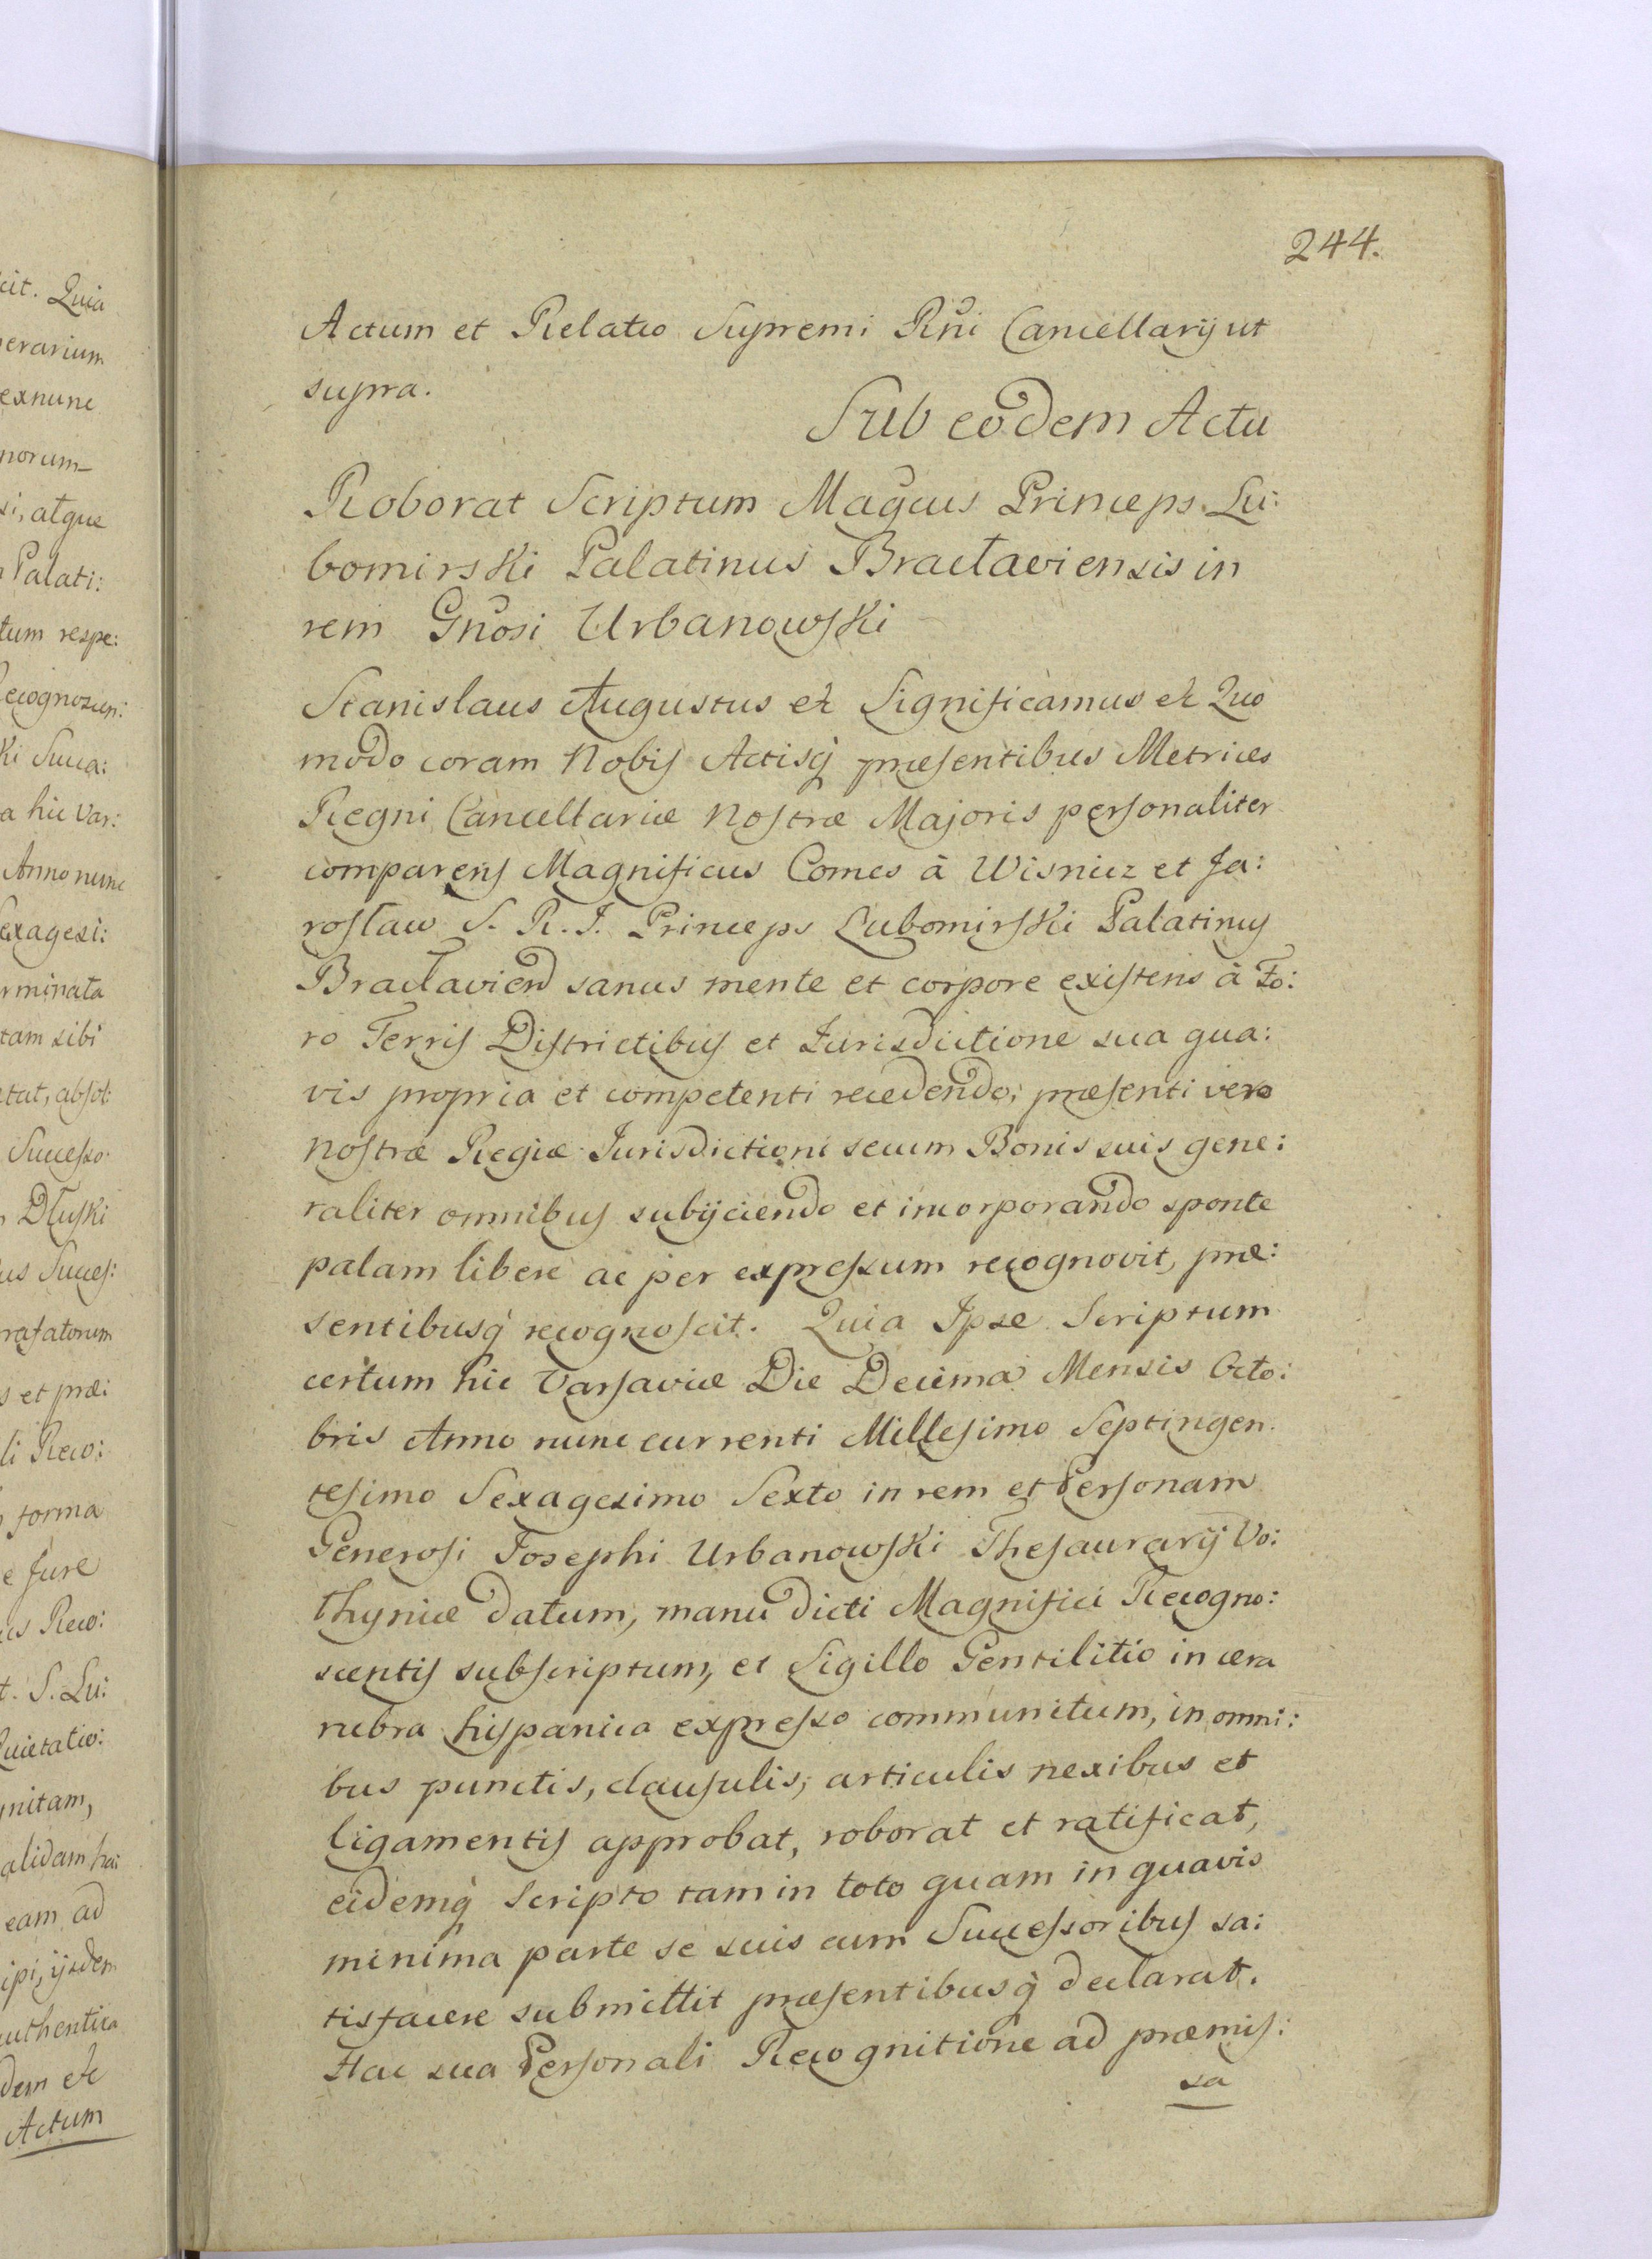 244.
Actum et Relatio Supremi Rñi Cancellarij ut
supra.
Sub eodem Actu
Roborat Scriptum Magcus Princeps Lu:
bomirski Palatinus Bracłaviensis in
rem Gnosi Urbanowski
Stanislaus Augustus et Significamus et Quo
modo coram Nobis Actisq̀ præsentibus Metrices
Regni Cancellariæ Nostræ Majoris personaliter
comparens Magnificus Comes à Wisnicz et Ja:
rosław S. R. I. Princeps Lubomirski Palatinus
Bracłavien sanus mente et corpore existens à Fo:
ro Terris Districtibus et Jurisdictione sua qua:
vis propria et competenti recedendo; præsenti vero
Nostræ Regiæ Jurisdictioni secum Bonis suis gene:
raliter omnibus subijciendo et incorporando sponte
palam libere ac per expressum recognovit, præ:
sentibusq̀ recognoscit. Quia Ipse Scriptum
certum hic Varsaviæ Die Decima Mensis Octo:
bris Anno nunc currenti Millesimo Septingen.
tesimo Sexagesimo Sexto in rem et Personam
Generosi Josephi Urbanowski Thesaurarij Vo:
lhyniæ datum, manu dicti Magnifici Recogno:
scentis subscriptum, et Sigillo Gentilitio in cera
rubra hispanica expresso communitum, in omni:
bus punctis, clausulis, articulis nexibus et
ligamentis approbat, roborat et ratificat,
eidemq̀ Scripto tam in toto quam in quavis
minima parte se suis cum Successoribus sa:
tisfacere submittit præsentibusq̀ declarat.
Hac sua Personali Recognitione ad præmis:
sa
cit. Quia
erarium
exnunc
norum
si, atque
Palati:
tum respe:
ecognoscen:
ki Succa:
a hic Var:
Anno nunc
exagesi:
rminata
tam sibi
tat, absol:
Successo
Dłuski
us Succes:
rasatorum
s et præ:
li Reco:
forma
e Jure
is Reco:
t. S. Lu:
Quietatio:
nitam,
alidam ha:
eam ad
ipi, ijsdem
authentica
dem etc
Actum